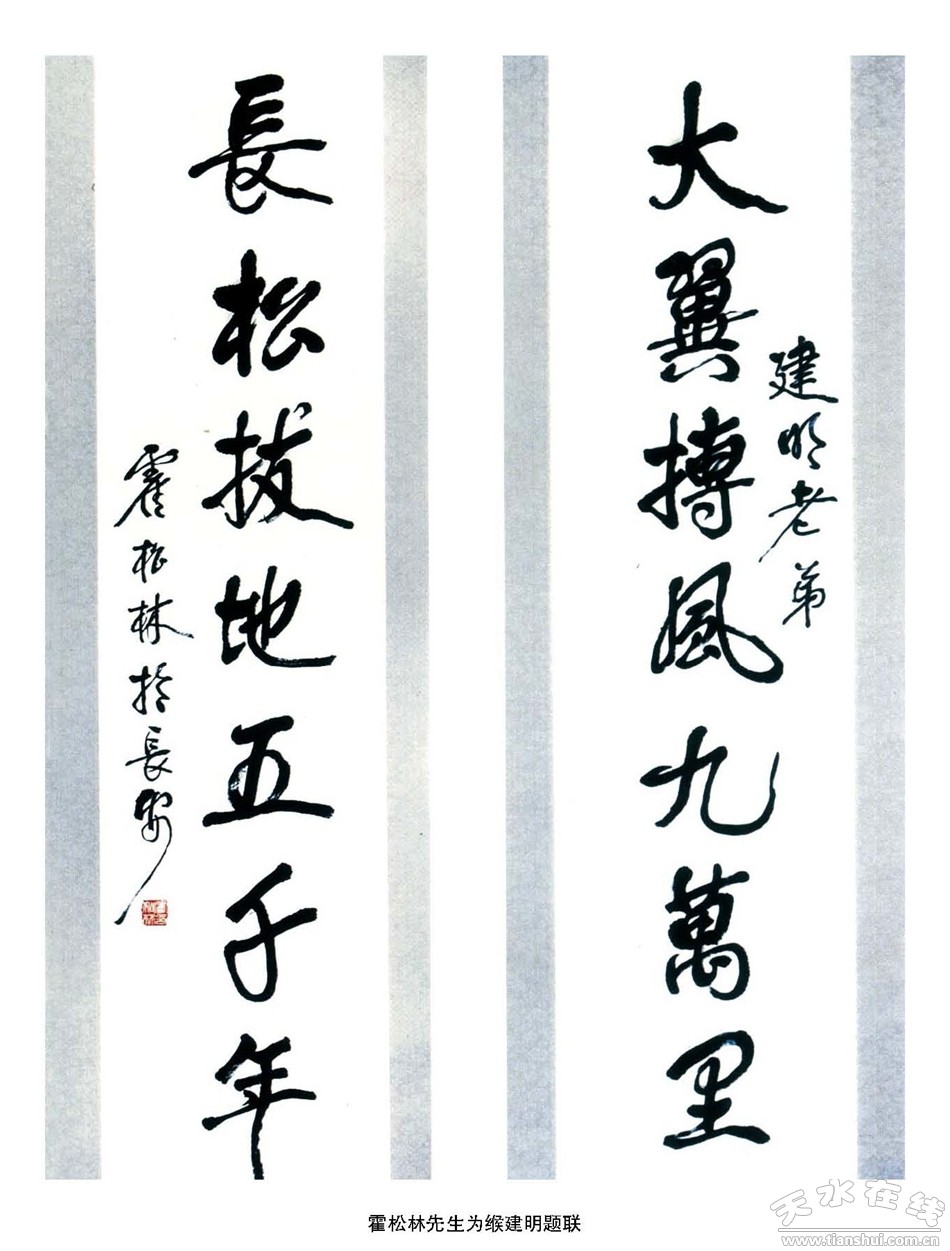 大翼搏風九萬里
建明老弟
長松拔地五千年
霍松林於長安
霍松林先生为缑建明题联
天水在线
www.tianshui.com.cn